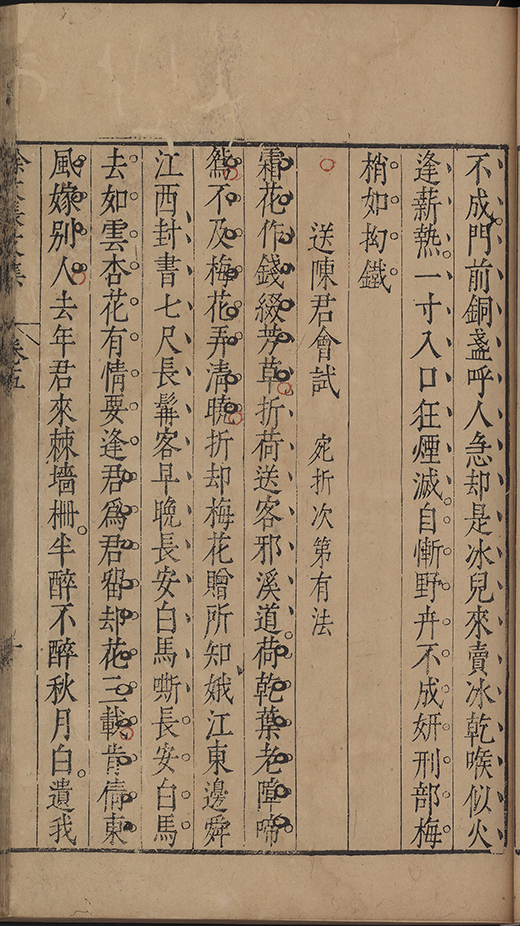 不成門前銅盞呼人急却是冰兒來賣冰乾喉似火
逢薪熱一寸入口狂煙滅自慚野卉不成妍刑部梅
梢如拗鐵
送陳君會試　宛折次第有法
霜花作錢綴芳草折荷送客邪溪道荷乾葉老障啼
鴛不及梅花弄清曉折却梅花贈所知娥江東邊舜
江西封書七尺長髯客早晚長安白馬嘶長安白馬
去如雲杏花有情要逢君爲君畱却花三載肯倩東
風嫁別人去年君來棘墻柵半醉不醉秋月白遺我
徐文長文集　卷五